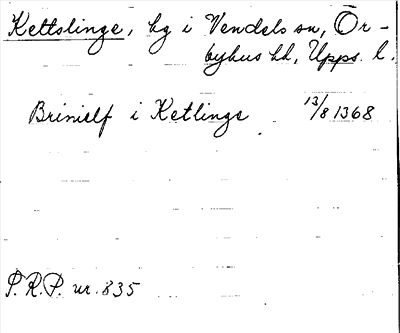 Kettslinge, by i Vendels sn, Ör-
byhus hd, Upps. l.
Brinielf i Ketlinge 13/8 1368
P.R.P. nr. 835